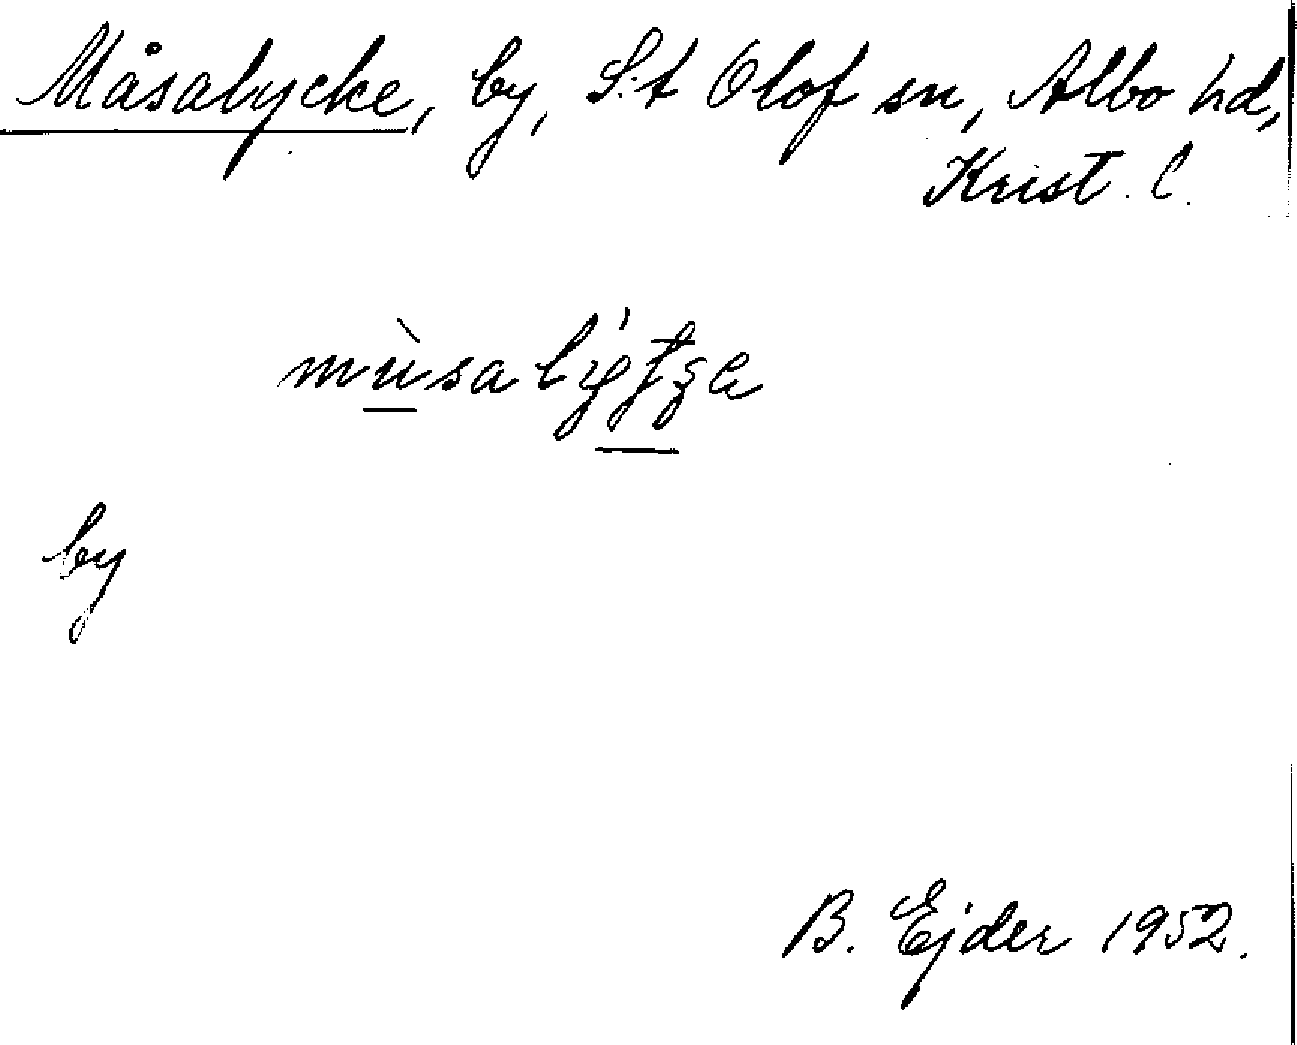 Måsalycke, by, S:t Olof sn, Albo hd,
Krist. l.
by
B. Ejder 1952.